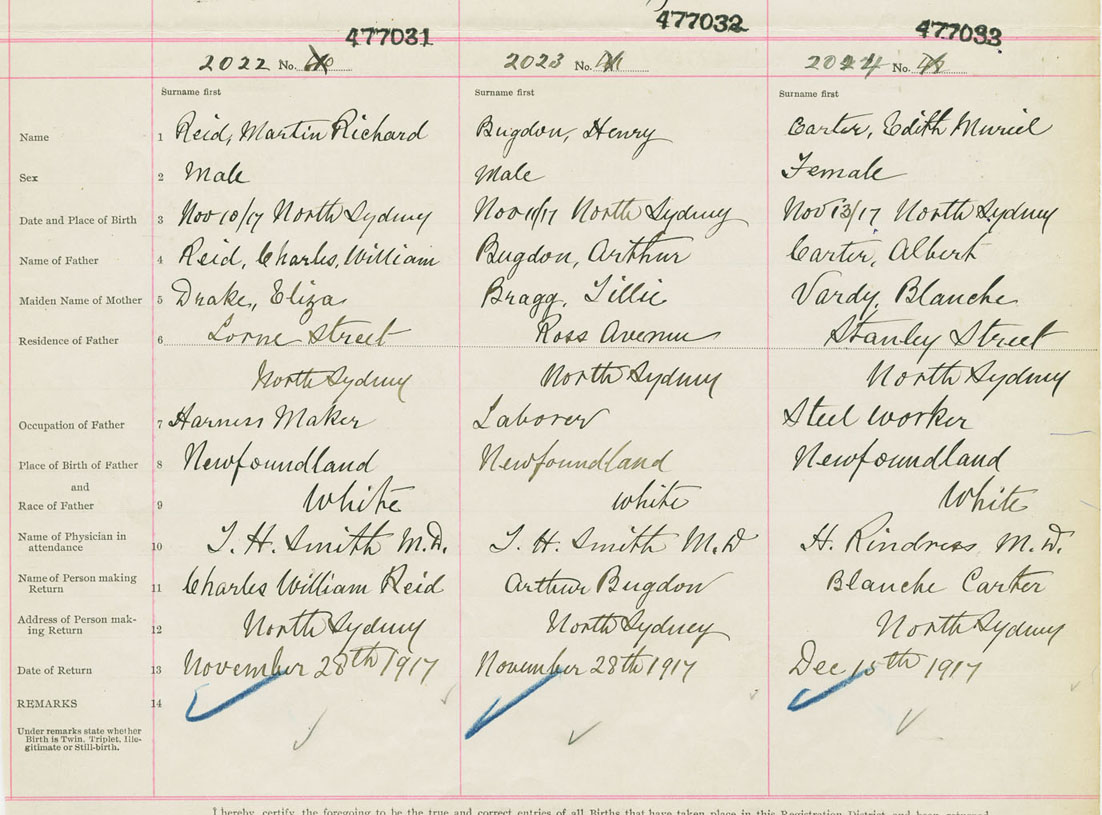 477031 477032 477033
2022 No. 2023 No. 2024 No.
Surname first Surname first Surname first
Name 1 Reid, Martin Richard Bugdon, Henry Carter, Edith Muriel
Sex 2 Male Male Female
Date and Place of Birth 3 Nov 10/17 North Sydney Nov 11/17 North Sydney Nov 13/17 North Sydney
Name of Father 4 Reid, Charles, William Bugdon, Arthur Carter, Albert
Maiden Name of Mother 5 Drake, Eliza Bragg, Tillie Vardy, Blanche
Residence of Father 6 Lorne Street Ross Avenue Stanley Street
North Sydney North Sydney North Sydney
Occupation of Father 7 Harness Maker Laborer Steel worker
Place of Birth of Father 8 Newfoundland Newfoundland Newfoundland
and
Race of Father 9 White white White
Name of Physician in
attendance 10 T. H. Smith M.D. T. H. Smith M.D H. Rindress, M.D.
Name of Person making
Return 11 Charles William Reid Arthur Bugdon Blanche Carter
Address of Person mak-
ing Return 12 North Sydney North Sydney North Sydney
Date of Return 13 November 28th 1917 November 28th 1917 Dec 15th 1917
REMARKS 14
Under remarks state whether
Birth is Twin, Triplet, Ille-
gitimate or Still-birth.
I hereby certify the foregoing to be the true and correct entries of all Births that have taken place in this Registration District and been returned